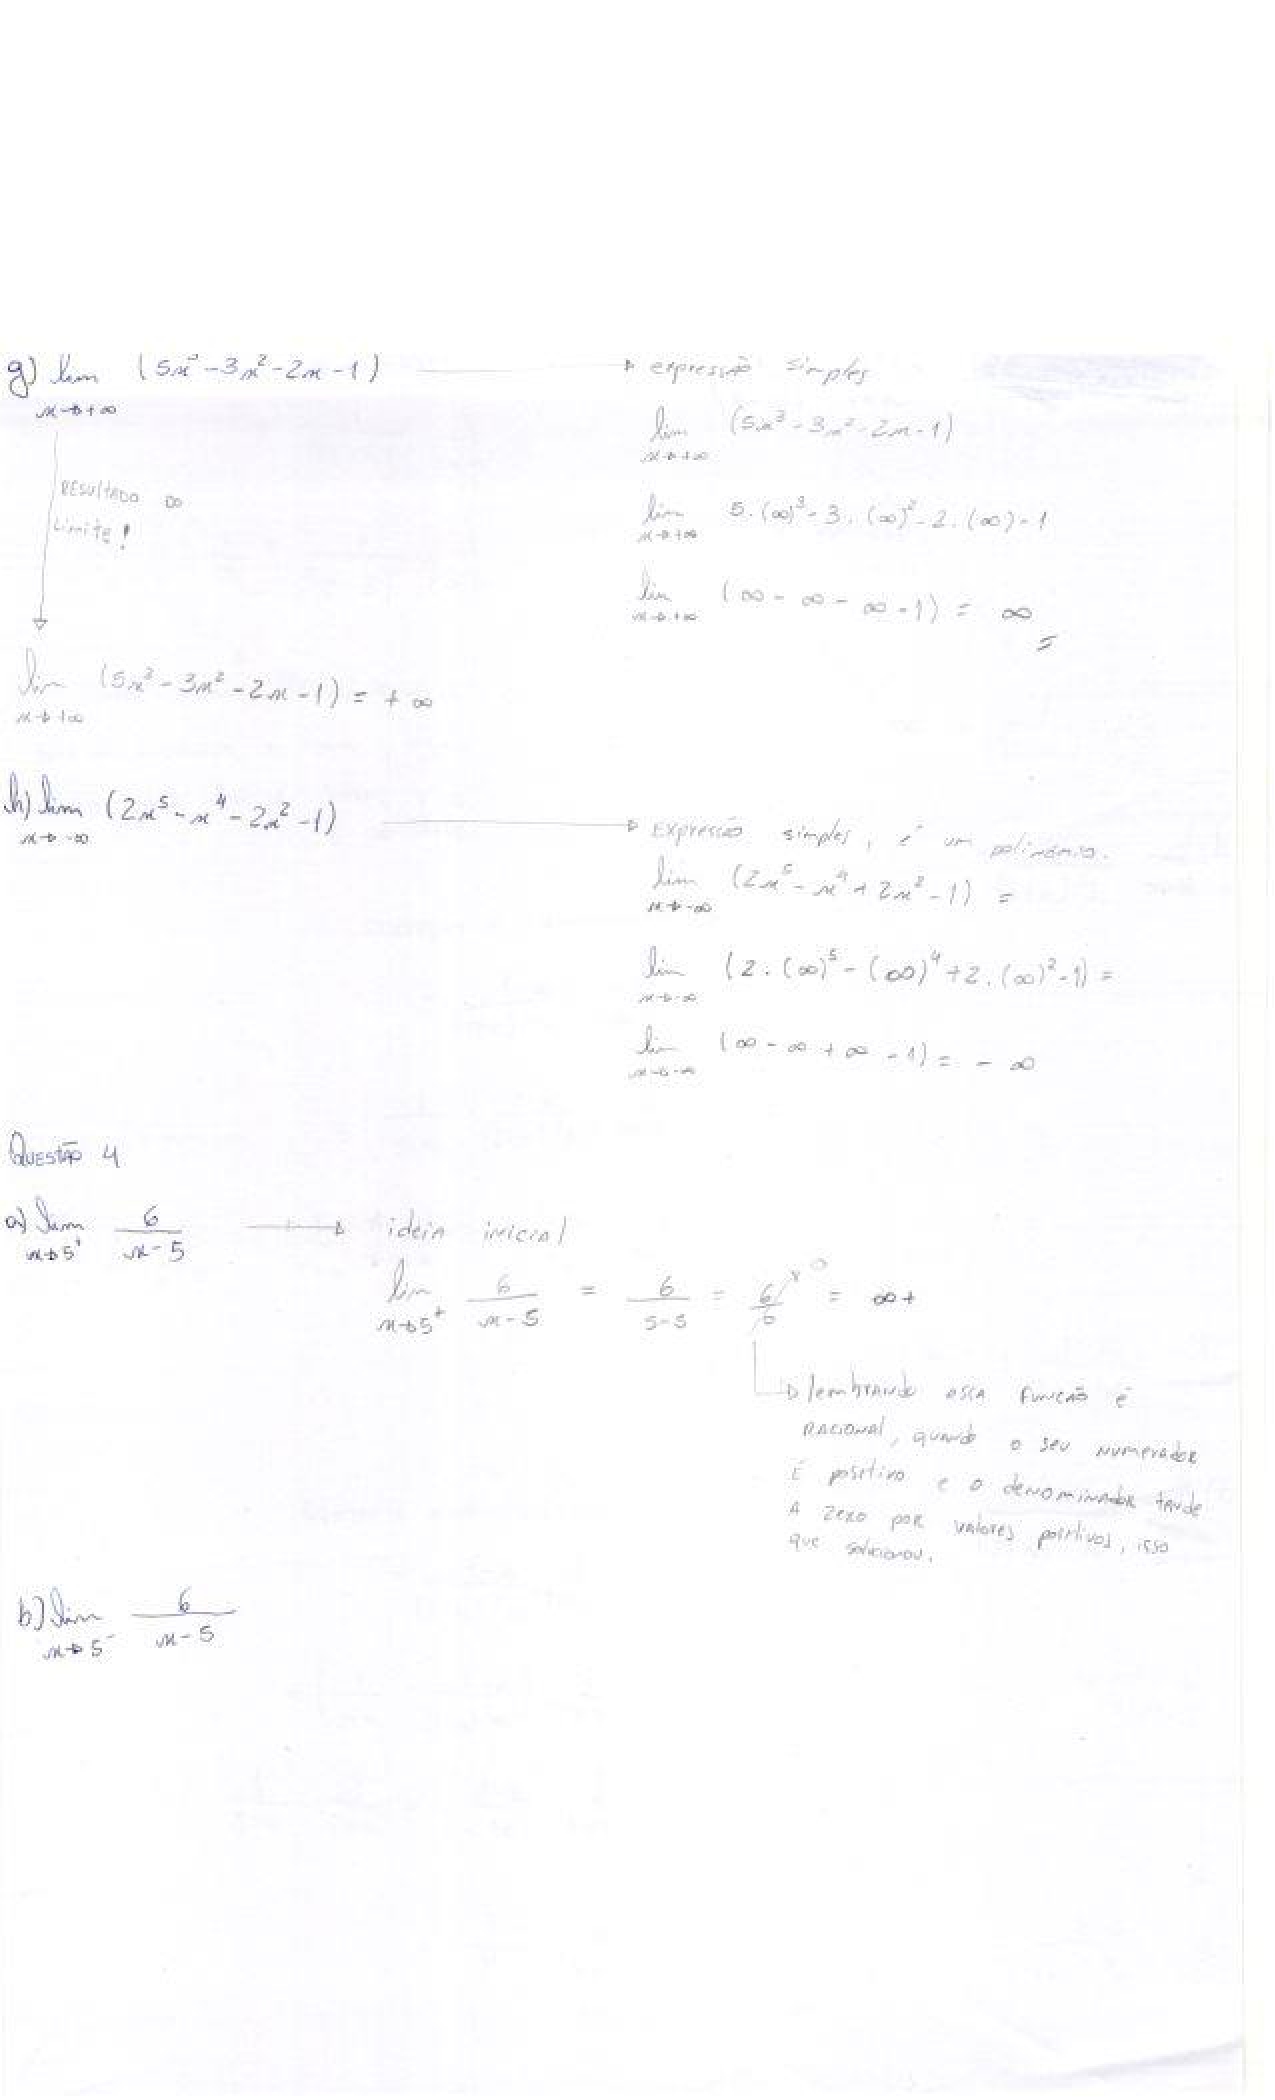 g) lim (5x³ - 3x² - 2x - 1) → expressão simples
x→+∞
lim (5x³ - 3x² - 2x - 1)
x→+∞
RESULTADO DO
Limite!
lim 5.(∞)³ - 3.(∞)² - 2.(∞) - 1
x→+∞
lim (∞ - ∞ - ∞ - 1) = ∞
x→+∞
lim (5x³ - 3x² - 2x - 1) = +∞
x→+∞
h) lim (2x⁵ - x⁴ - 2x² - 1) → Expressão simples, é um polinômio.
x→-∞
lim (2x⁵ - x⁴ + 2x² - 1) =
x→-∞
lim (2.(∞)⁵ - (∞)⁴ + 2.(∞)² - 1) =
x→-∞
lim (∞ - ∞ + ∞ - 1) = -∞
x→-∞
QUESTÃO 4
a) lim 6/(x - 5) → ideia inicial
x→5⁺
lim 6/(x - 5) = 6/(5-5) = 6/0 = ∞+
x→5⁺
→ lembrando essa função é
RACIONAL, quando o seu numerador
É positivo e o denominador tende
A zero por valores positivos, isso
que solucionou.
b) lim 6/(x - 5)
x→5⁻